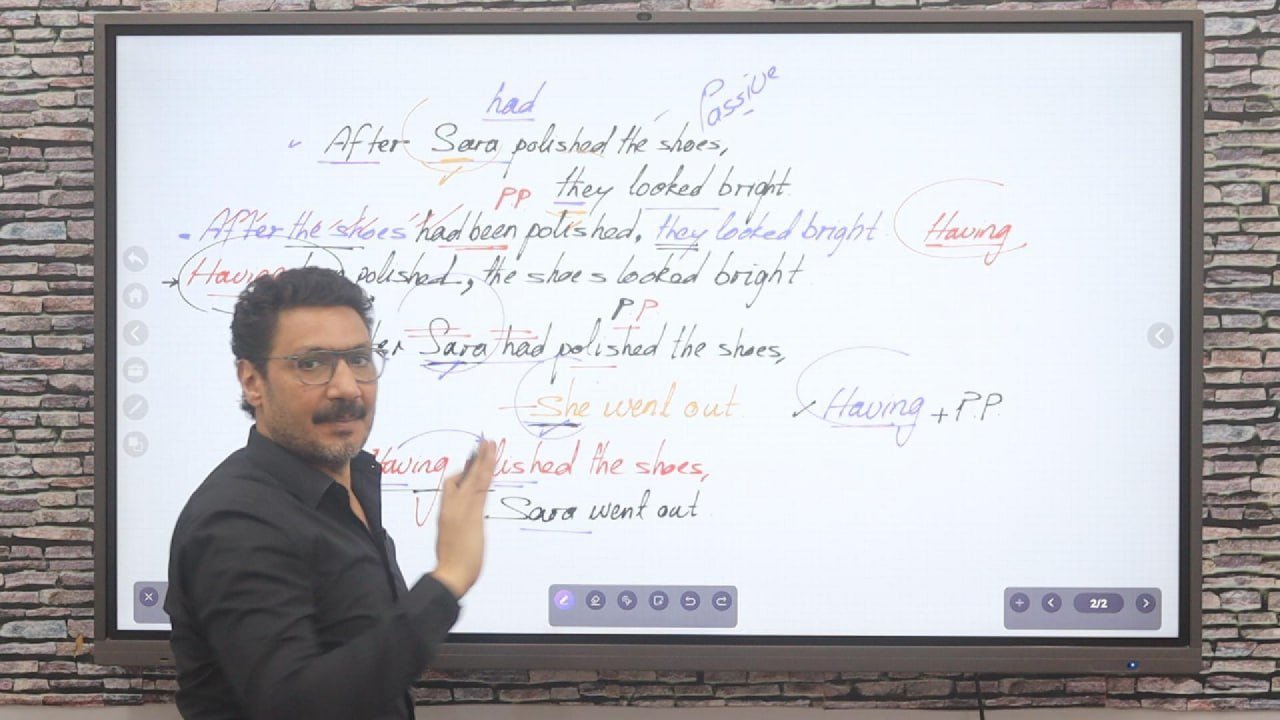 had
Passive
After Sara polished the shoes,
PP they looked bright.
After the shoes had been polished, they looked bright Having
Having polished, the shoes looked bright
P.P
Sara had polished the shoes,
She went out. Having + P.P.
Having the shoes,
Sara went out
2/2